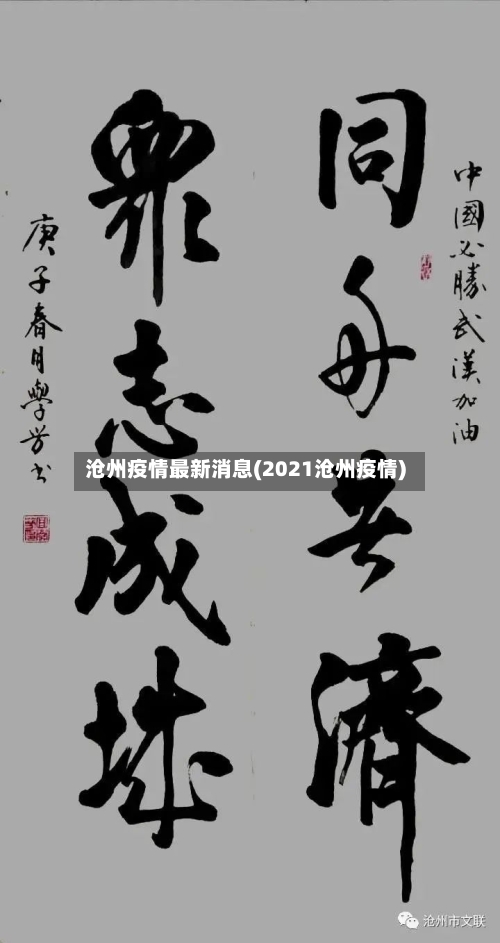 中國必勝武漢加油
同舟共濟
眾志成城
庚子春月學芳書
沧州疫情最新消息(2021沧州疫情)
沧州市文联